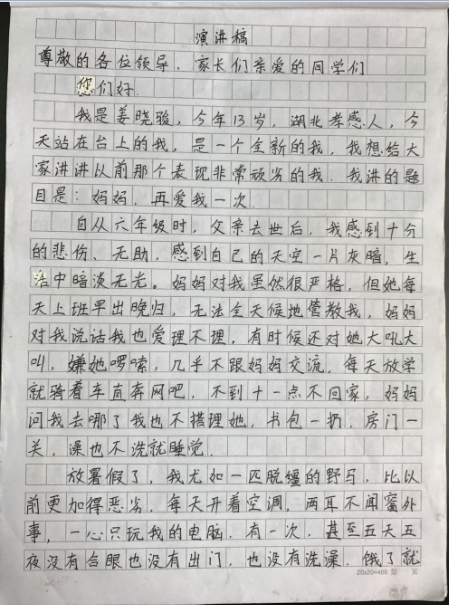 演讲稿
尊敬的各位领导、家长们亲爱的同学们
您们好
我是姜晓骏，今年13岁，湖北孝感人，今
天站在台上的我，是一个全新的我，我想给大
家讲讲从前那个表现非常顽劣的我.我讲的题
目是：妈妈，再爱我一次.
自从六年级时，父亲去世后，我感到十分
的悲伤、无助，感到自己的天空一片灰暗，生
活中暗淡无光。妈妈对我虽然很严格，但她每
天上班早出晚归，无法全天候地管教我，妈妈
对我说话我也爱理不理，有时候还对她大吼大
叫，嫌她啰嗦，几乎不跟妈妈交流，每天放学
就骑着车直奔网吧，不到十一点不回家，妈妈
问我去哪了我也不搭理她，书包一扔，房门一
关，澡也不洗就睡觉.
放暑假了，我尤如一匹脱缰的野马，比以
前更加得恶劣，每天开着空调，两耳不闻窗外
事，一心只玩我的电脑，有一次，甚至五天五
夜没有合眼也没有出门，也没有洗澡，饿了就
20x20=400